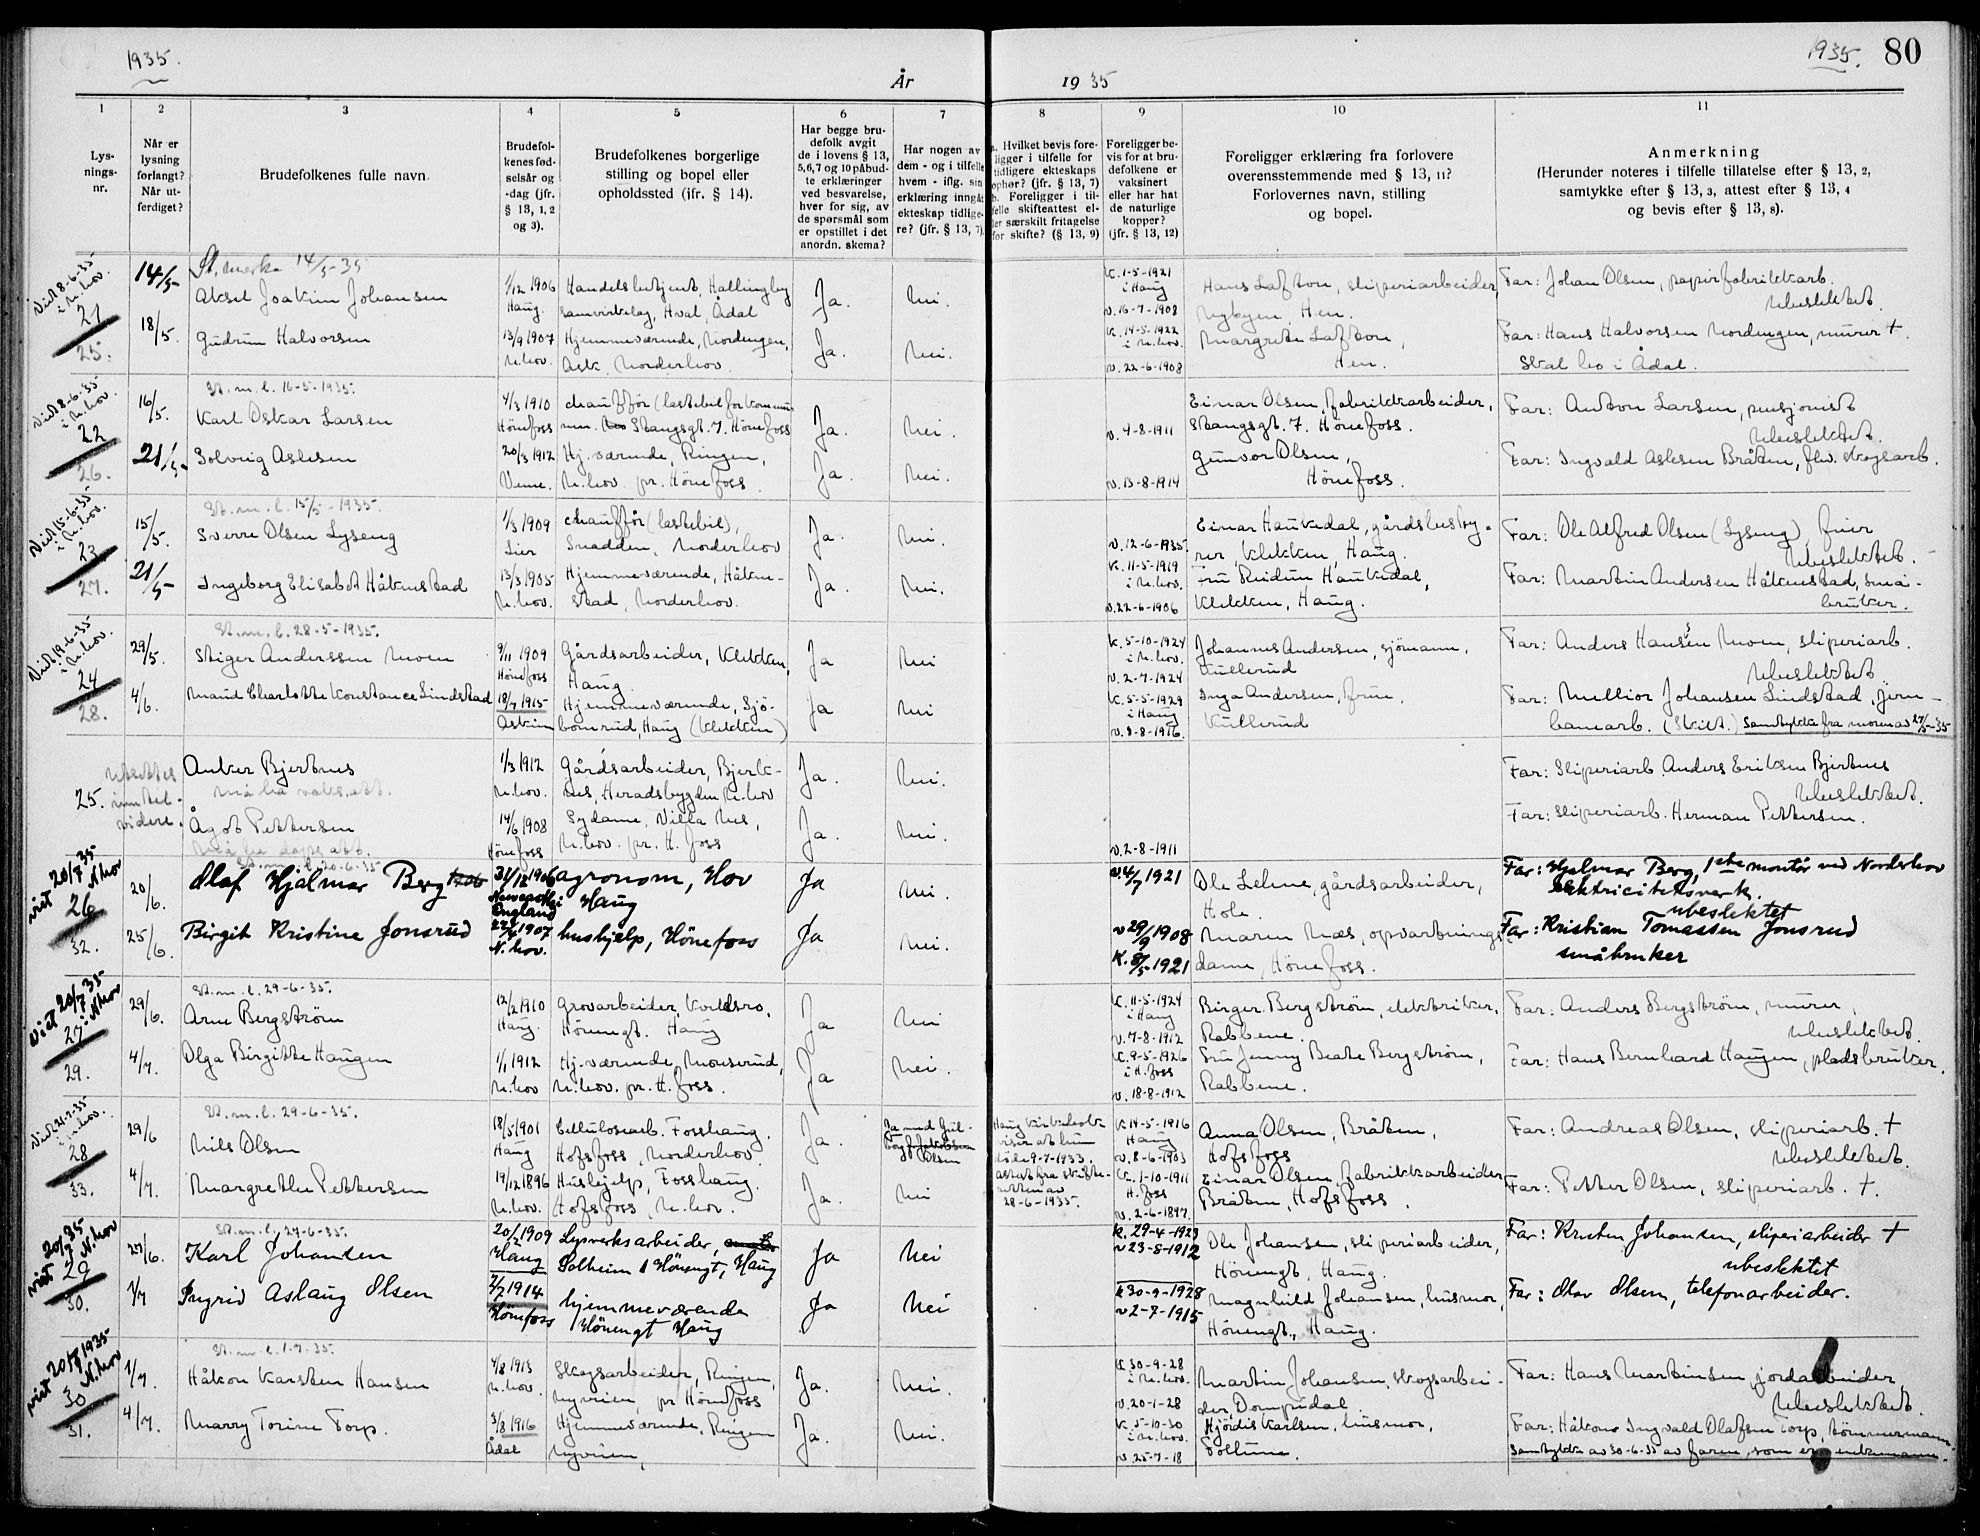 1935.
År
1935
1935. 80
1
2
3
4
5
6
7
8
9
10
11
Lys-
nings-
nr.
Når er
lysning
forlangt?
Når ut-
ferdiget?
Brudefolkenes fulle navn.
Brudefol-
kenes fød-
selsår og
-dag (jfr.
§ 13, 1, 2
og 3).
Brudefolkenes borgerlige
stilling og bopel eller
opholdssted (jfr. § 14).
Har begge bru-
defolk avgit
de i lovens § 13,
5,6,7 og 10 påbud-
te erklæringer
ved besvarelse,
hver for sig, av
de spørsmål som
er opstillet i det
anordn. skema?
Har nogen av
dem - og i tilfelle
hvem - iflg. sin
erklæring inngåt
ekteskap tidlige-
re? (jfr. § 13, 7).
a. Hvilket bevis fore-
ligger i tilfelle for
tidligere ekteskaps
ophør? (jfr. § 13, 7)
b. Foreligger i til-
felle skifteattest el-
ler særskilt fritagelse
for skifte? (§ 13, 9)
Foreligger be-
vis for at bru-
defolkene er
vaksinert
eller har hat
de naturlige
kopper?
(jfr. § 13, 12)
Foreligger erklæring fra forlovere
overensstemmende med § 13, 11?
Forlovernes navn, stilling
og bopel.
Anmerkning
(Herunder noteres i tilfelle tillatelse efter § 13, 2,
samtykke efter § 13, 3, attest efter § 13, 4
og bevis efter § 13, 8).
Viet 8-6-35
i N.hov.
21
25.
14/5
18/5.
St. merke 14/5-35
Aksel Joakim Johansen
Gudrun Halvorsen
1/12 1906
Haug.
13/9 1907
N.hov.
Handelsbetjent, Hallingby
samvirkelag, Hval, Ådal
Hjemmeværende, Nordengen,
Ask, Norderhov.
Ja.
Ja.
Nei.
Nei.
K. 1-5-1921
i Haug
v. 16-7-1908
K. 14-5-1922
i N.hov.
v. 22-6-1908
Hans Lafton, sliperiarbeider,
Nybyen, Hen.
Margrete Lafton,
Hen.
Far: Johan Olsen, papirfabrikkarb.
Ubeslektet.
Far: Hans Halvorsen Nordengen, murer †.
Skal bo i Ådal.
Viet 8-6-35
i N.hov.
22
26.
16/5.
21/5.
St. m. l. 16-5-1935.
Karl Oskar Larsen
Solveig Aslesen
4/3 1910
Hönefoss
20/3 1912
Veme.
chauffør (lastebil for kommu-
nen. Stangsgt. 7. Hönefoss
Hj.værende, Ringen,
N.hov. pr. Hönefoss.
Ja.
Ja.
Nei.
Nei.
v. 4-8-1911
v. 13-8-1914
Einar Olsen, fabrikkarbeider,
Stangsgt. 7. Hönefoss.
Gunvor Olsen,
Hönefoss.
Far: Anton Larsen, pensjonist
Ubeslektet.
Far: Ingvald Aslesen Bråten, flv. skogsarb.
Viet 15-6-35
i N.hov.
23
27.
15/5.
21/5
St. m. l. 15/5-1935.
Sverre Olsen Lyseng
Ingeborg Elisabet Håkenstad
1/3 1909
Lier
13/3 1905
N.hov.
chauffør (lastebil),
Snadden, Norderhov
Hjemmeværende, Håken-
stad, Norderhov.
Ja.
Ja.
Nei.
Nei.
v. 12-6-1935
K. 11-5-1919
i N.hov.
v. 22-6-1906
Einar Haukedal, gårdsbesty-
rer, Klekken, Haug.
Fru Reidun Haukedal,
Klekken, Haug.
Far: Ole Alfred Olsen (Lyseng), fuier
Ubeslektet.
Far: Martin Andersen Håkenstad, små-
bruker.
Viet 19-6-35
i N.hov.
24
28.
29/5.
4/6.
St. m. l. 28-5-1935.
Stiger Anderssen Moen
Maud Charlotte Konstance Lindstad
9/11 1909
Hönefoss
18/7 1915
Askim
Gårdsarbeider, Klekken,
Haug.
Hjemmeværende, Sjö-
bomrud, Haug (Klekken)
Ja
Ja
Nei
Nei
K. 5-10-1924
i N.hov.
v. 2-7-1924
K. 5-5-1929
i Haug
v. 8-8-1916.
Johannes Andersen, sjömann,
Kullerud
Inga Andersen, frue,
Kullerud
Far: Anders Hansen Moen, sliperiarb.
Ubeslektet.
Far: Mellior Johansen Lindstad, jern-
banearb. (Skilt.) Samtykke fra moren av 27/5-35
25.
Utsettes
inntil
videre.
Anker Bjerknes
må ha vaks.att.
Ågot Pettersen
Må ha dåps.att.
1/3 1912
N.hov.
14/6 1908
Hönefoss
Gårdsarbeider, Bjerk-
nes, Heradsbygden N.hov
Sydame, Villa Nes,
N.hov. pr. H. foss
Ja.
Ja.
Nei.
Nei.
v. 2-8-1911
Far: Sliperiarb. Anders Eriksen Bjerknes
Ubeslektet.
Far: Sliperiarb. Herman Pettersen.
viet 20/7 35
i N.hov
26
32.
20/6.
25/6.
St. m. l. 20-6-35
Olaf Hjalmar Berg
Birgit Kristine Jonsrud
31/12 1906
Newcastle i
England
22/4 1907
N.hov.
agronom, Hov
Haug
hushjelp, Hönefoss
Ja
Ja
Nei.
Nei.
v. 4/7 1921
v 29/9 1908
K. 8/5 1921
Ole Lehne, gårdsarbeider,
Hole.
Maren Næs, opvartnings-
dame, Hönefoss.
Far: Hjalmar Berg, 1ste montör ved Norderhov
elektricitetsverk.
ubeslektet
Far: Kristian Tomassen Jonsrud
småbruker
viet 20/7 35
i N.hov
27
29.
29/6.
4/7.
St. m. l. 29-6-35.
Arne Bergström
Olga Birgitte Haugen
12/2 1910
Haug.
1/1 1912
N.hov
Grovarbeider, Kveldsro,
Hönengt. Haug
Hj.værende, Monserud,
N.hov. pr. H. foss.
Ja
Ja
Nei
Nei.
K. 11-5-1924
i Haug
v. 7-8-1912
K. 9-5-1926
i H. foss
v. 18-8-1912
Birger Bergström, elektriker,
Rabbene.
Fru Jenny Beate Bergström,
Rabbene.
Far: Anders Bergström, murer,
Ubeslektet.
Far: Hans Bernhard Haugen, pladsbruker.
Viet 21-7-35
i N.hov.
28
33.
29/6
4/7.
St. m. l. 29-6-35.
Nils Olsen
Margrethe Pettersen
18/5 1901
Haug
19/12 1896
N.hov.
Cellulosearb. Fosshaug.
Hofsfoss, Norderhov.
Hushjelp, Fosshaug.
Hofsfoss, N.hov.
Ja.
Ja.
Ja med Gul-
Olsen
Nei
Haug kirkebok
viser at hun
döde 9-7-1933.
attest fra skifte-
retten av
28-6-1935.
K. 14-5-1916
Haug
v. 8-6-1903
K. 1-10-1911
H. foss
v. 2-6-1897.
Anna Olsen, Bråten,
Hofsfoss
Einar Olsen, fabrikkarbeider,
Bråten, Hofsfoss.
Far: Andreas Olsen, sliperiarb. †
Ubeslektet.
Far: Petter Olsen, sliperiarb. †.
viet 20/7 35
i N.hov
29
30.
27/6.
1/7
St. m. l. 27-6-35.
Karl Johansen
Ingrid Aslaug Olsen
20/2 1909
Haug
2/2 1914
Hönefoss
Lysverksarbeider,
Solheim i Hönengt, Haug
hjemmeværende
Hönengt Haug
Ja
Ja
Nei
Nei
k. 29-4-1923
v 23-8-1912
k 30-9-1928
v 2-7-1915
Ole Johansen, sliperiarbeider,
Hönengt, Haug.
Magnhild Johansen, husmor,
Hönengt., Haug.
Far: Kristen Johansen, sliperiarbeider †
ubeslektet
Far: Olav Olsen, telefonarbeider.
viet 20/7 1935
i N.hov
30
31.
1/7.
4/7.
St. m. l. 1-7-35.
Håkon Karsten Hansen
Marry Torine Torp.
4/8 1913
N.hov.
3/8 1916
Ådal
Skogsarbeider, Ringen,
Nyveien, pr Hönefoss
Hjemmeværende, Ringen
Nyveien,
Ja.
Ja.
Nei.
Nei.
K 30-9-28
i N.hov.
v. 20-1-28
K. 5-10-30
i N.hov.
v. 25-7-18
Martin Johansen, skogsarbei-
der, Dompidal.
Hjördis Karlsen, husmor,
Follum.
Far: Hans Martinsen, jordarbeider
Ubeslektet.
Far: Håkon Ingvald Olafsen Torp, tömmermann.
Samtykke av 30-6-35 av faren, som er enkemann.